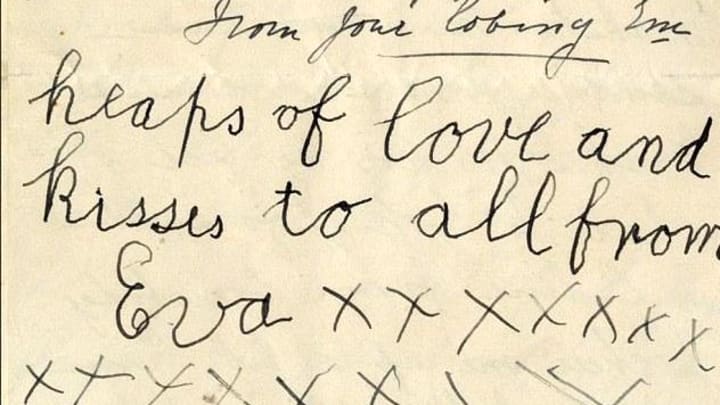 From your loving Em
heaps of love and
kisses to all from
Eva x x x x x x x
x x x x x x